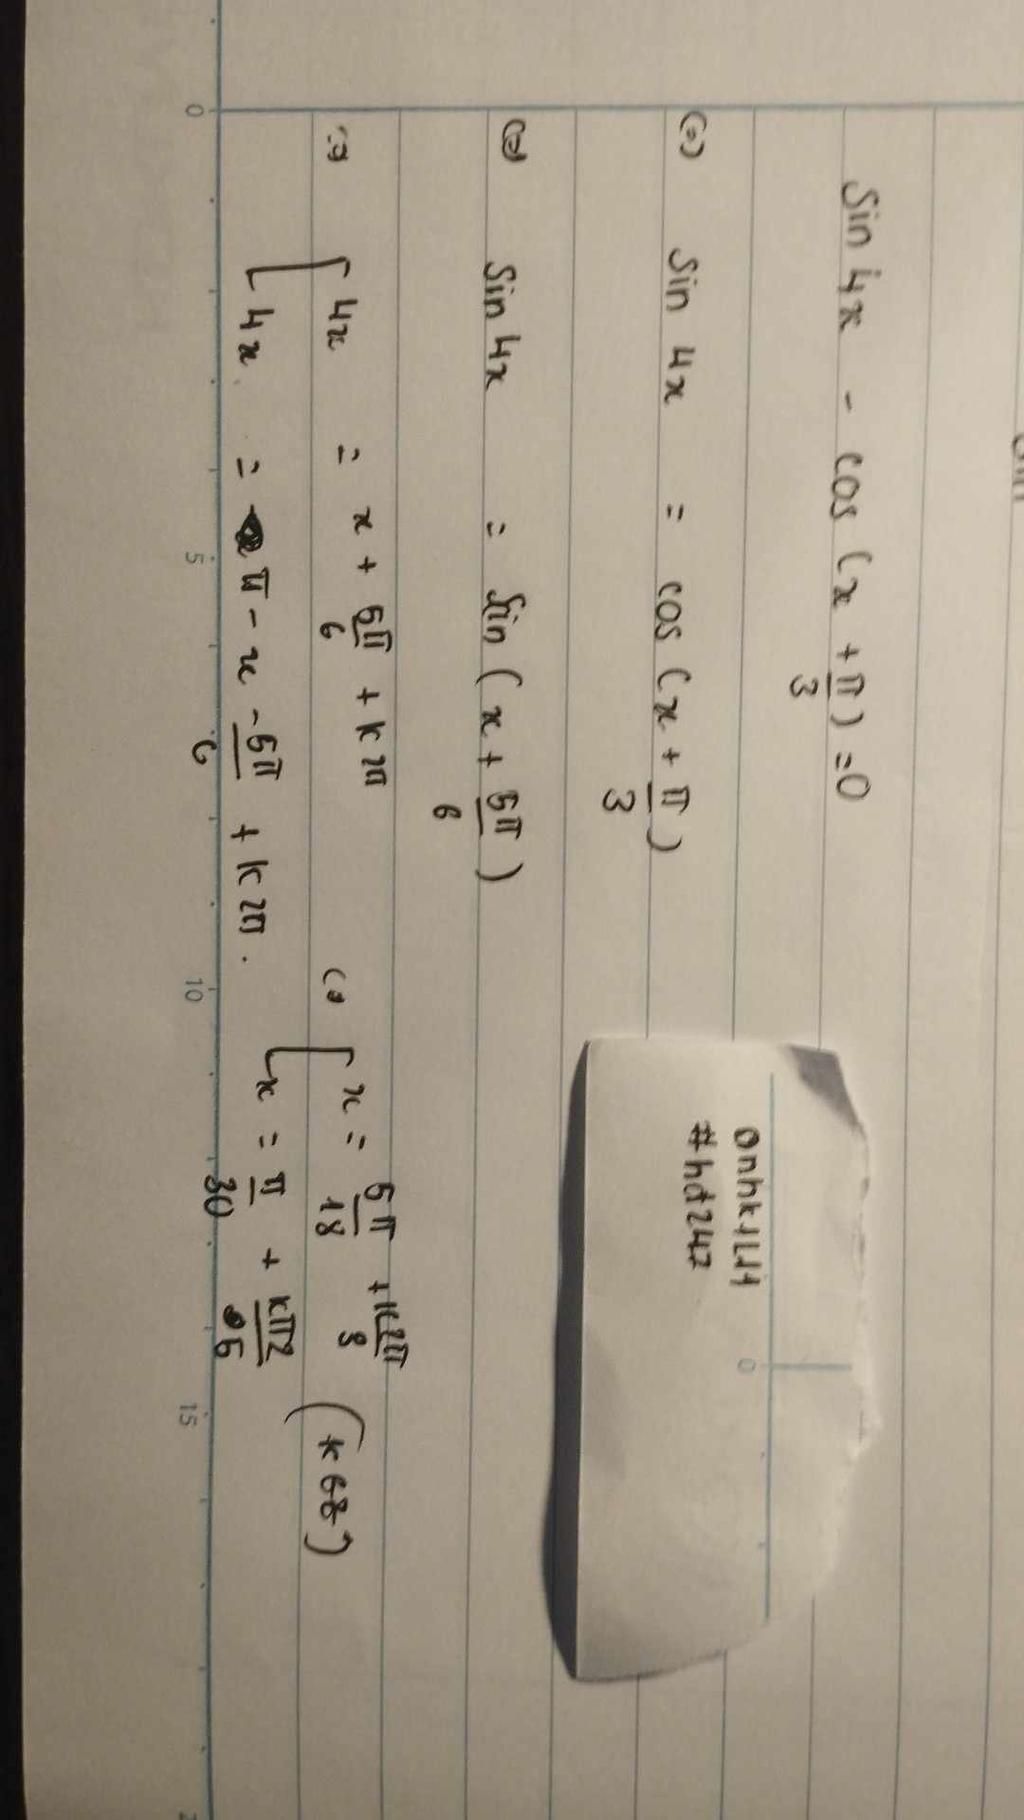 Sin 4x - cos (x + π/3) = 0
(=) Sin 4x = cos (x + π/3)
(=) Sin 4x = Sin (x + 5π/6)
[ 4x = x + 5π/6 + k2π
[ 4x = π - x - 5π/6 + k2π.
[ x = 5π/18 + k2π/3
[ x = π/30 + kπ2/5 (k ∈ Z)
#hd247
0
5
10
15
0